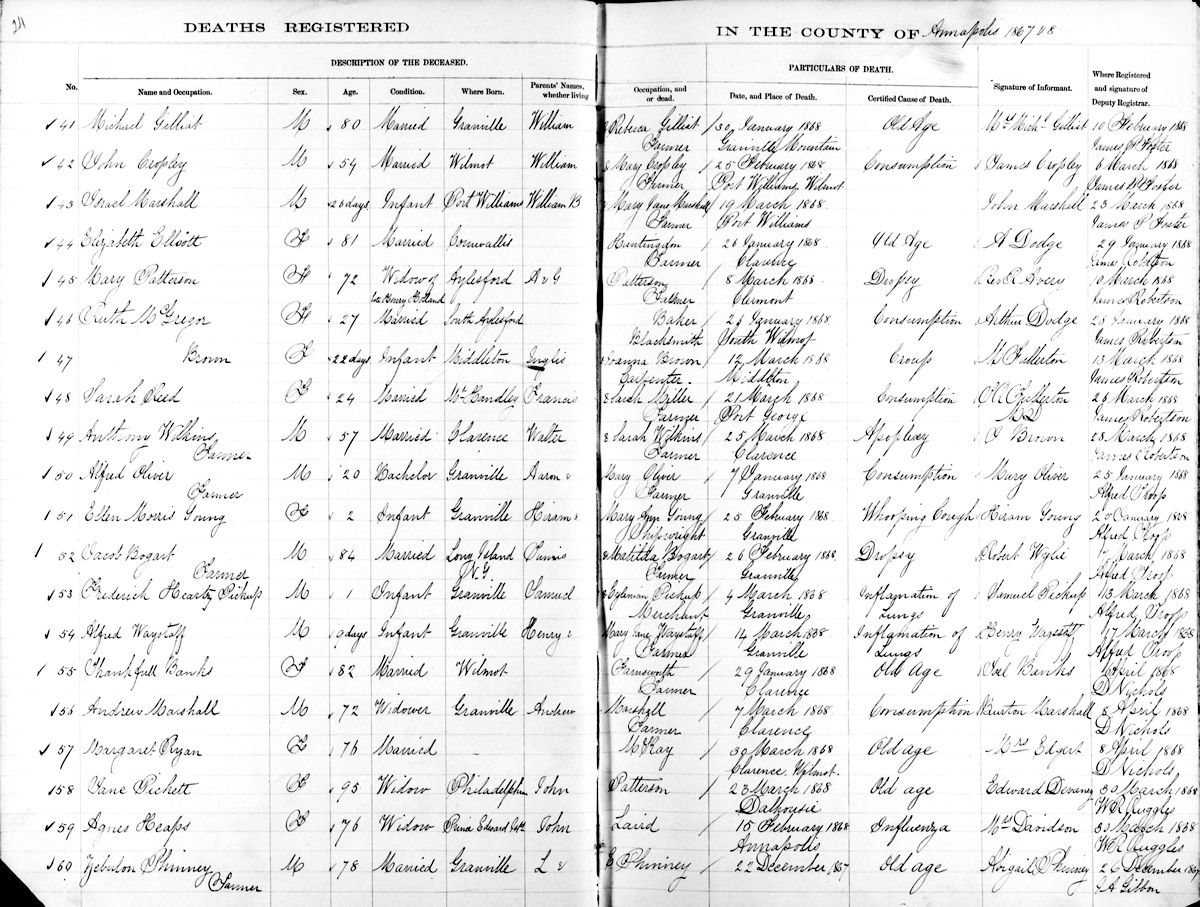 24
DEATHS REGISTERED IN THE COUNTY OF Annapolis 1867 & 8
DESCRIPTION OF THE DECEASED. PARTICULARS OF DEATH.
No. Name and Occupation. Sex. Age. Condition. Where Born. Parents' Names, whether living Occupation, and or dead. Date, and Place of Death. Certified Cause of Death. Signature of Informant. Where Registered and signature of Deputy Registrar.
41 Michael Gilliat M 80 Married Granville William & Rebecca Gilliat 30 January 1868 Old Age Mrs Michl Gilliat 10 February 1868
Farmer Granville Mountain James P Foster
42 John Cropley M 54 Married Wilmot William & Mary Cropley 25 February 1868 Consumption James Cropley 6 March 1868
Farmer Port Williams Wilmot James P Foster
43 Israel Marshall M 26 days Infant Port Williams William B & Mary Jane Marshall 19 March 1868 John Marshall 23 March 1868
Farmer Port Williams James P Foster
44 Elizabeth Elliott F 81 Married Cornwallis Huntingdon 26 January 1868 Old Age A Dodge 29 January 1868
Farmer Clarence James Robertson
45 Mary Patterson F 72 Widow of Aylesford A & G Patterson 8 March 1868 Dropsy Revd R Avery 10 March 1868
Late Henry Farmer Clermont James Robertson
46 Ruth McGregor F 27 Married South Aylesford Baker 23 January 1868 Consumption Arthur Dodge 25 January 1868
Blacksmith South Wilmot James Robertson
47 Brown F 22 days Infant Middleton Inglis & Joanna Brown 12 March 1868 Croup M Fullerton 13 March 1868
Carpenter Middleton James Robertson
48 Sarah Reed F 24 Married Mt Handley Francis & Sarah Miller 21 March 1868 Consumption Fullerton 26 March 1868
Farmer Port George MD James Robertson
49 Anthony Wilkins M 57 Married Clarence Walter & Sarah Wilkins 25 March 1868 Apoplexy J Brown 28 March 1868
Farmer Farmer Clarence James Robertson
50 Alfred Oliver M 20 Bachelor Granville Aaron & Mary Oliver 7 January 1868 Consumption Mary Oliver 25 January 1868
Farmer Farmer Granville Alfred Troop
51 Ellen Morris Young F 2 Infant Granville Hiram & Mary Ann Young 25 February 1868 Whooping Cough Hiram Young January 1868
Shipwright Granville Alfred Troop
52 Jacob Bogart M 84 Married Long Island & Matilda Bogart 26 February 1868 Dropsy Robert Wylie March 1868
Farmer N.Y. Farmer Granville Alfred Troop
53 Frederick Pickup M 1 Infant Granville Samuel & Pickup 4 March 1868 Inflamation of Samuel Pickup 13 March 1868
Merchant Granville Lungs Alfred Troop
54 Alfred Waystaff M 9 days Infant Granville Henry & Mary Jane Waystaff 14 March 1868 Inflamation of Henry Wagstaff 17 March 1868
Farmer Granville Lungs Alfred Troop
55 Thankfull Banks F 82 Married Wilmot Farnsworth 29 January 1868 Old Age Banks April 1868
Farmer Clarence D Nichols
56 Andrew Marshall M 72 Widower Granville Andrew & Marshall 7 March 1868 Consumption Burton Marshall 8 April 1868
Farmer Clarence D Nichols
57 Margaret Ryan F 76 Married McKay 30 March 1868 Old age Mrs Edgert 8 April 1868
Clarence Wilmot D Nichols
58 Jane Pickett F 95 Widow Philadelphia John Patterson 23 March 1868 Old age Edward Devaney 30 March 1868
Dalhousie W R Ruggles
59 Agnes Heaps F 76 Widow Prince Edward Isl. John Laird 15 February 1868 Influenza Mrs Davidson 30 March 1868
Annapolis W R Ruggles
60 Zebulon Phinney M 78 Married Granville L & E Phinney 22 December 1867 Old age Abigail Phinney 26 December 1867
Farmer J A Gibbon